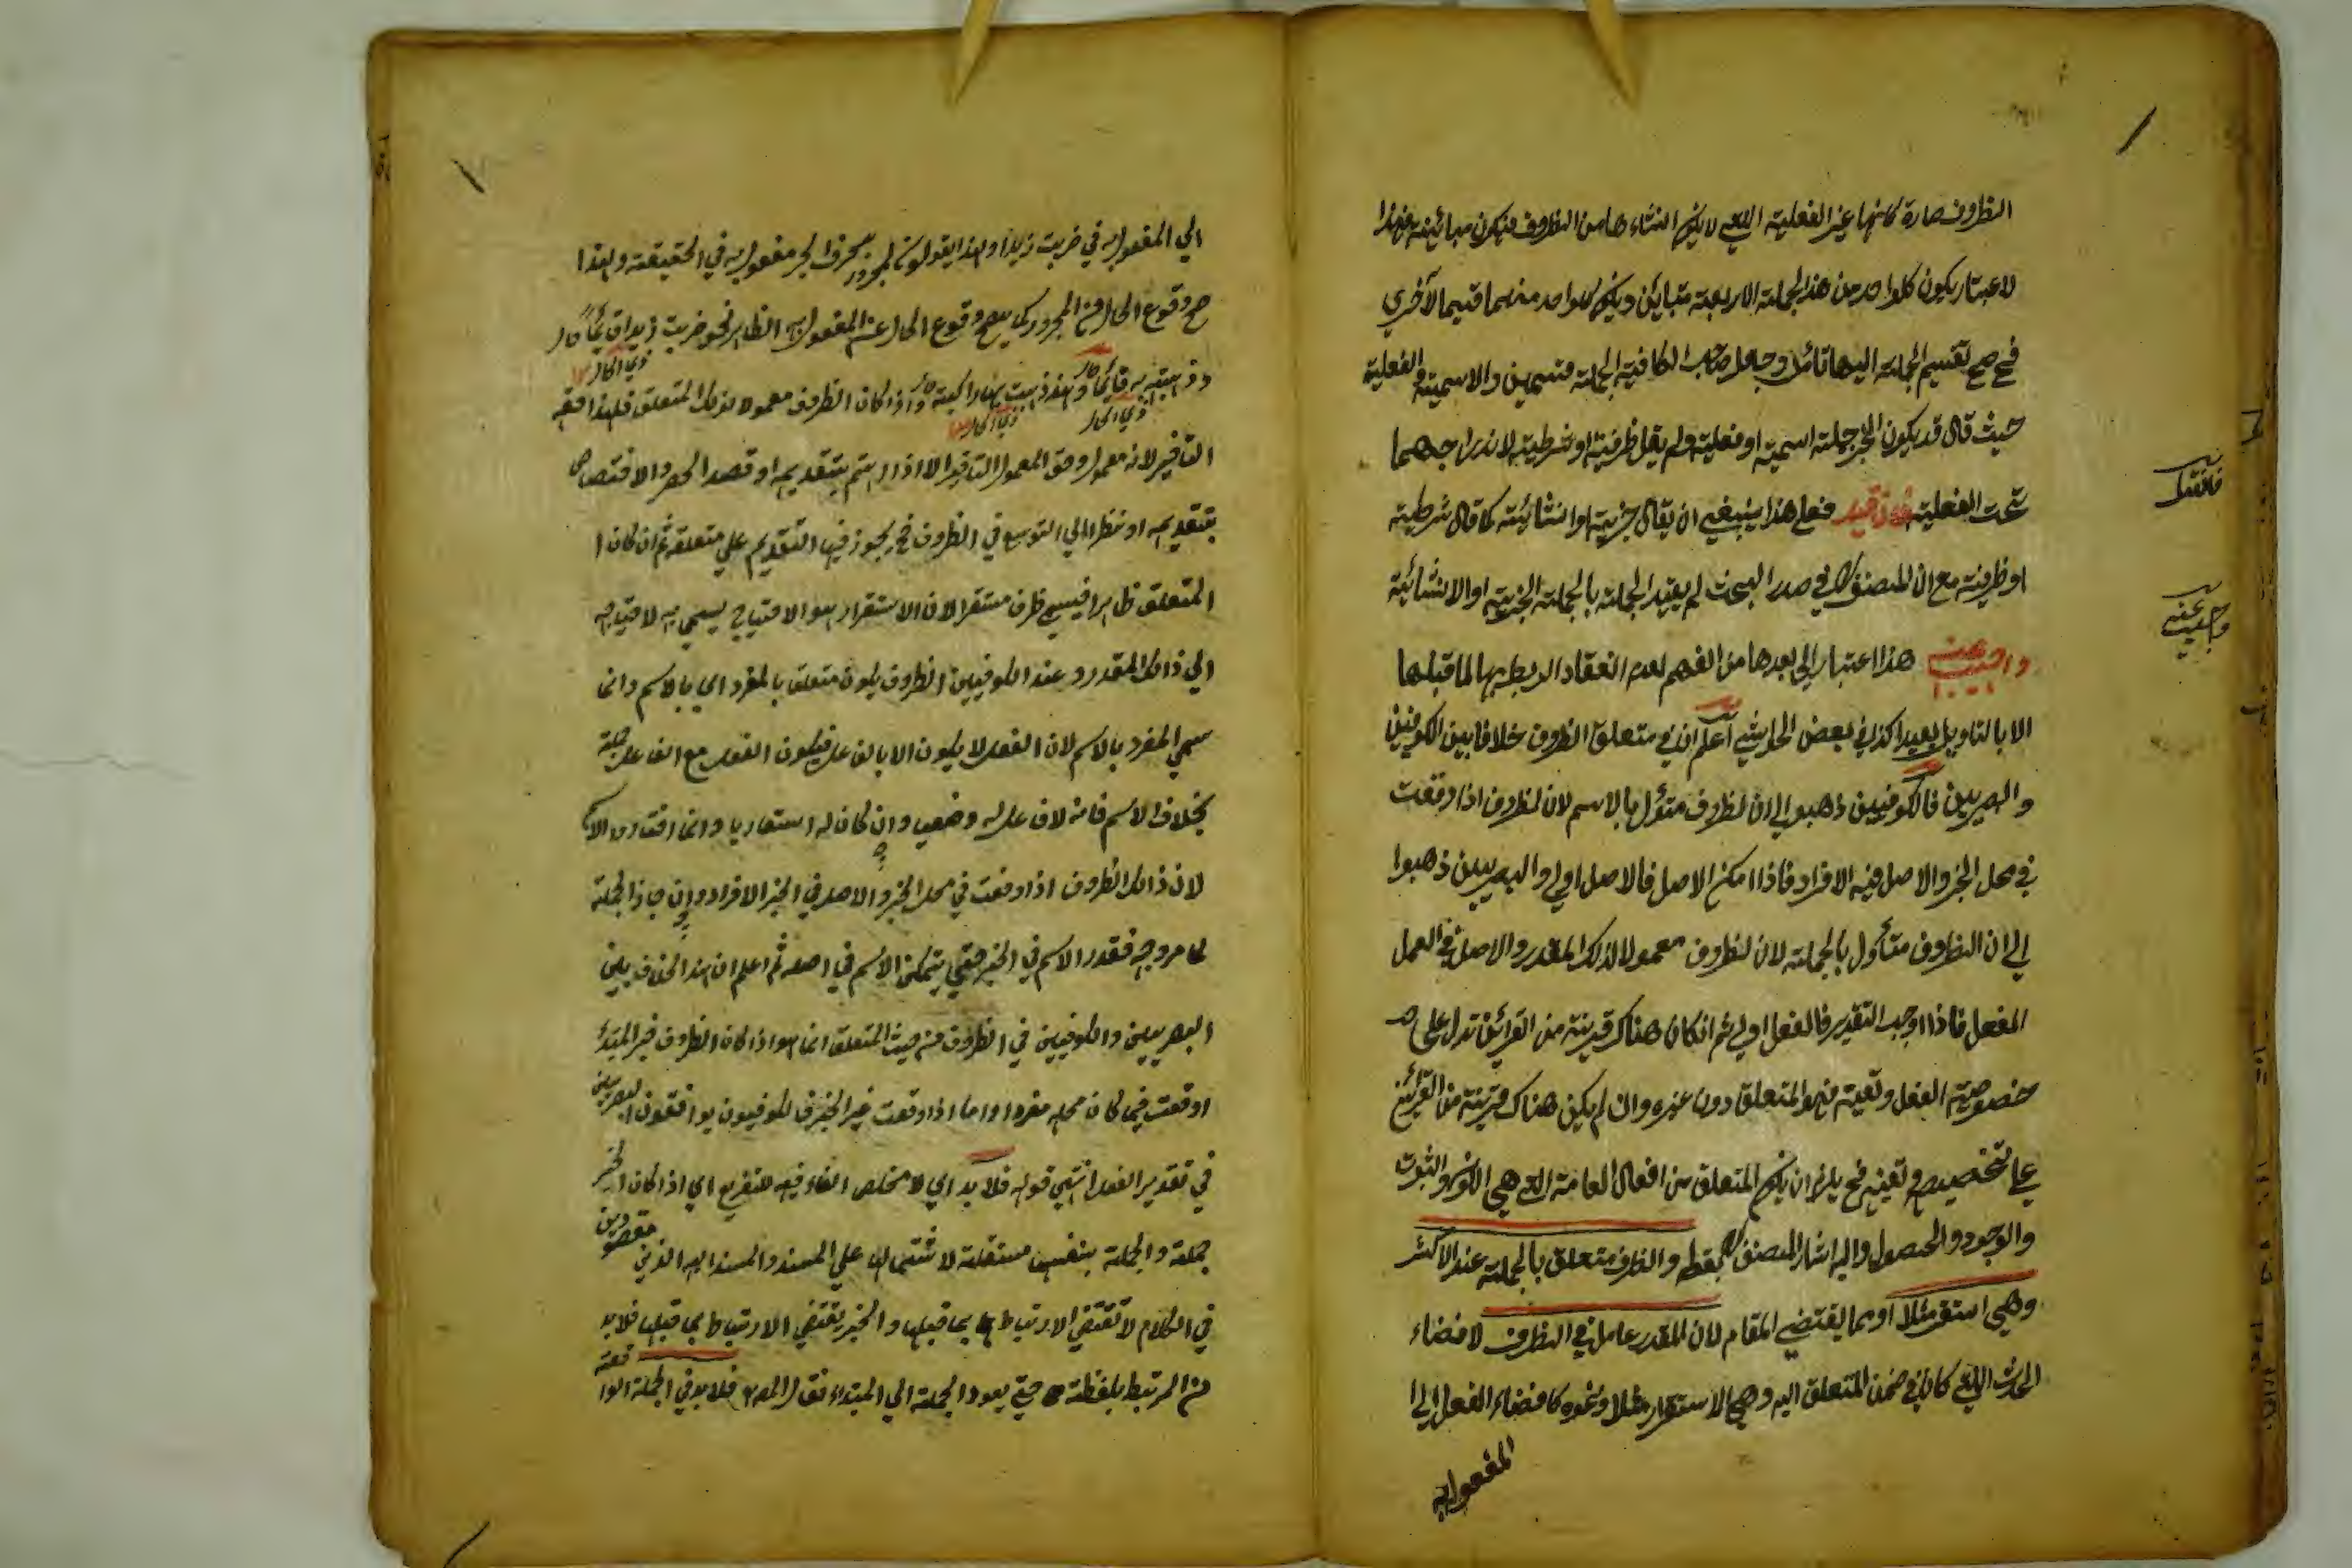 الظروف صارة كانها غير الفعلية التي لا يكون انشاء ها من الظروف فيكون مبائينة فهذا
لاعتبار يكون كلواحد من هذ الجملة الاربعة متبائن ويكون كلواحد منهما قسيما لآخرى
فح صح تقسيم الجملة اليها تأمل وجعل صاحب الكافية الجملة قسمين والاسمية والفعلية
حيث قال قد يكون الخبر جملة اسمية او فعلية ولم يقل ظرفية او شرطية لاندراجهما
تحت الفعلية فان قيل فعلى هذا ينبغي ان يقال خبرية او انشائية كما قال شرطية
او ظرفية مع ان المصنف في صدر البحث لم يقيد الجملة بالجملة الخبرية او الانشائية
واجيب عنه هذا اعتبار الى بعدها من الفهم لعدم انعقاد الربط بها لما قبلها
الا بالتاويل بعيدا كذا في بعض الحواشي اعلم ان في متعلق الظروف خلافا بين الكوفيين
والبصريين فالكوفيين ذهبوا الى ان الظروف متؤل بالاسم لان لظروف اذا وقعت
في محل الخبر والاصل فيه الافراد فاذا امكن الاصل فالاصل اولى والبصريين ذهبوا
الى ان الظروف متأول بالجملة لان لظروف معمولا لذلك المقدر والاصل في العمل
الفعل فاذا اوجب التقدير فالفعل اولى ثم ان كان هناك قرينة من القرائن تدل على
خصوصية الفعل وتعينه فهو المتعلق دون غيره وان لم يكن هناك قرينة من القرائن
على تخصيصه وتعينه فح يلزم ان يكون المتعلق من افعال العامة التي هي الكون والثبوت
والوجود والحصول واليه اشار المصنف بقوله والظرف متعلق بالجملة عند الاكثر
وهي استقر مثلا او مما يقتضي المقام لان المقدر عامل في الظرف لافضاء
الحدث الذي كان في ضمن المتعلق اليه وهي الاستقرار مثلا ونحوه كافضاء الفعل الى ا
المفعول به
فان قيل
واجيب عنه
الي المفعول به في ضربت زيدا ولهذا يقولون المجرور بحرف الجر مفعول به في الحقيقة ولهذا
صح وقوع الحال من المجرور كما يصح وقوع الحال عن المفعول به الظاهر نحو ضربت زيدا قائما
ذي الحال
ذي الحال
ذي الحال
واذا كان الظروف معمولا لذلك المتعلق فلهذا حقه
التأخير لانه معمول وحق المعمول التأخير الا اذا اهتم بتقديمه او قصد الحصر والاختصاص
بتقديمه او نظرا الي التوسع في الظروف فح يجوز فيها التقديم علي متعلقه ثم ان كان ا
المتعلق ظاهرا فيسمى ظرف مستقرا لان الاستقرار هو الاحتياج يسمي به لاحتياجه
الي ذالك المقدر وعند الكوفيين الظروف يكون متعلق بالمفرد اي بالاسم وانما
سمي المفرد بالاسم لان الفعل لا يكون الا بالفاعل فيكون الفعل مع الفاعل جملة
بخلاف الاسم فانه لا فاعل له وضعيا وان كان له استعاريا وانما اختاروا الاسم
لان ذالك الظروف اذا وقعت في محل الخبر والاصل في الخبر الافراد وان جاز الجملة
لما مر وجه فقدر الاسم في الخبر حتي يتمكن الاسم في اصله ثم اعلم ان هذا الخلاف بين
البصريين والكوفيين في الظروف من حيث المتعلق انما هو اذا كان الظروف خبر المبتدأ
او وقعت فيما كان محله مفردا واما اذا وقعت غير الخبر فالكوفيون يوافقون البصريين
في تقدير الفعل انتهي قوله فلا بد اي لا مخلص الفاء فيه للتفريع اي اذا كان الخبر
جملة والجملة بنفسها مستقلة لاشتمالها علي المسند والمسند اليه الذين مقصودين
في الكلام لا تقتضي الارتباط بما قبلها والخبر يقتضي الارتباط بما قبلها فلا بد
من المرتبط بلفظة حتي يعود الجملة الي المبتداء فقال المصنف فلا بد في الجملة الواقعة